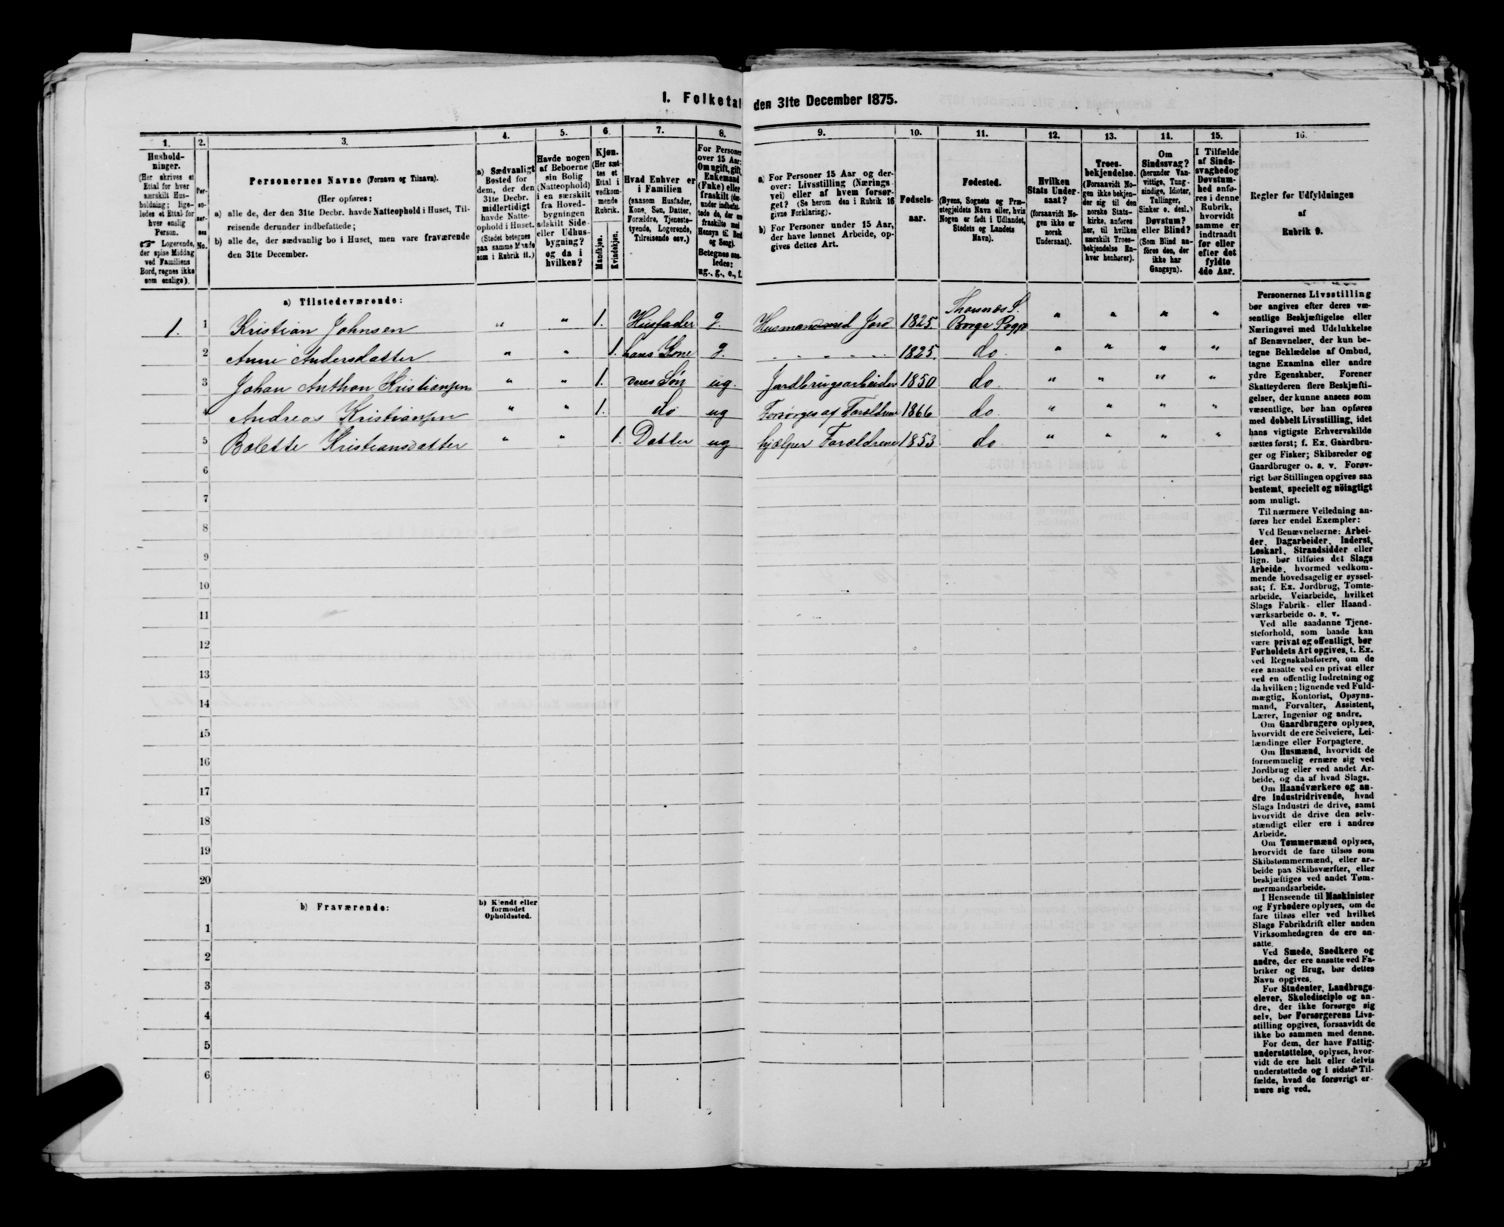 I. Folketal den 31te December 1875.
1. 2. 3. 4. 5. 6. 7. 8. 9. 10. 11. 12. 13. 14. 15. 16.
Hushold-
ninger.
(Her skrives et
Ettal for hver
særskilt Hus-
holdning; lige-
ledes et Ettal for
hver enslig
Person.
☞ Logerende,
der spise Middag
ved Familiens
Bord, regnes ikke
som enslige).
Per-
so-
ner-
nes
No.
Personernes Navne (Fornavn og Tilnavn).
(Her opføres:
a) alle de, der den 31te Decbr. havde Natteophold i Huset, Til-
reisende derunder indbefattede;
b) alle de, der sædvanlig bo i Huset, men vare fraværende
den 31te December.
a) Sædvanligt
Bosted for
dem, der den
31te Decbr.
midlertidigt
havde Natte-
ophold i Huset.
(Stedet betegnes
paa samme Maade
som i Rubrik 11.)
Havde nogen
af Beboerne
sin Bolig
(Natteophold)
i en særskilt
fra Hoved-
bygningen
adskilt Side-
eller Udhus-
bygning?
og da i
hvilken?
Kjøn.
(Her sæt-
tes et
Ettal i
vedkom-
mende
Rubrik.
Mandkjøn.
Kvindekjøn.
Hvad Enhver er
i Familien
(saasom Husfader,
Kone, Søn, Datter,
Forældre, Tjeneste-
tyende, Logerende,
Tilreisende osv.)
For Personer
over 15 Aar:
Om ugift, gift,
Enkemand
(Enke) eller
fraskilt
Betegnes saa-
ledes:
ug., g., e., f.
a) For Personer 15 Aar og der-
over: Livsstilling (Nærings-
vei) eller af hvem forsør-
get? (Se herom den i Rubrik 16
givne Forklaring).
b) For Personer under 15 Aar,
der have lønnet Arbeide, op-
gives dettes Art.
Fødsels-
aar.
Fødested.
(Byens, Sognets og Præ-
stegjeldets Navn eller, hvis
Nogen er født i Udlandet,
Stedets og Landets
Navn).
Hvilken
Stats Under-
saat?
(forsaavidt No-
gen ikke er
norsk
Undersaat).
Troes-
bekjendelse.
(Forsaavidt No-
gen ikke bekjen-
der sig til den
norske Stats-
kirke, anføres
her, til hvilken
særskilt Troes-
bekjendelse En-
hver henhører).
Om
Sindssvag?
(herunder Van-
vittige, Tung-
sindige, Idioter,
Tullinger,
Sinker o. desl.)
Døvstum?
eller Blind?
(Som Blind an-
føres den, der
ikke har
Gangsyn).
I Tilfælde
af Sinds-
svaghed og
Døvstum-
hed anfø-
res i denne
Rubrik,
hvorvidt
samme er
indtraadt
før eller
efter det
fyldte
4de Aar.
Regler før Udfyldningen
af
Rubrik 9.
a) Tilstedeværende:
1. 1 Kristian Johnsen " " 1. Husfader g. Husmand med Jord 1825 Thorsnæs S. Borge Pgj. " " " "
2 Anne Andersdatter " " 1. hans Kone g. " " " " " 1825. do. " " " "
3 Johan Anthon Kristiansen " " 1. deres Søn ug. Jordbrugsarbeider 1850 do. " " " "
4 Andreas Kristiansen " " 1. do ug Forsørges af Forældrene 1866 do. " " " "
5 Bolette Kristiansdatter " " 1. Datter ug hjælper Forældrene 1853 do " " " "
6
7
8
9
10
11
12
13
14
15
16
17
18
19
20
b) Fraværende:
b) Kjendt eller
formodet
Opholdssted.
1
2
3
4
5
6
Personernes Livsstilling
bør angives efter deres væ-
sentlige Beskjæftigelse eller
Næringsvei med Udelukkelse
af Benævnelser, der kun be-
tegne Beklædelse af Ombud,
tagne Examina eller andre
ydre Egenskaber. Forener
Skatteyderen flere Beskjæfti-
gelser, der kunne ansees som
væsentlige, bør han opføres
med dobbelt Livsstilling, idet
hans vigtigste Erhvervskilde
sættes først; f. Ex. Gaardbru-
ger og Fisker; Skibsreder og
Gaardbruger o. s. v. Forøv-
rigt bør Stillingen opgives saa
bestemt, specielt og nøiagtigt
som muligt.
Til nærmere Veiledning an-
føres her endel Exempler:
Ved Benævnelserne: Arbei-
der, Dagarbeider, Inderst,
Løskarl, Strandsidder eller
lign. bør tilføies det Slags
Arbeide, hvormed vedkom-
mende hovedsagelig er syssel-
sat; f. Ex. Jordbrug, Tomte-
arbeide, Veiarbeide, hvilket
Slags Fabrik- eller Haand-
værksarbeide o. s. v.
Ved alle saadanne Tjene-
steforhold, som baade kan
være privat og offentligt, bør
Forholdets Art opgives, f. Ex.
ved Regnskabsførere, om de
ere ansatte ved en privat eller
ved en offentlig Indretning og
da hvilken; lignende ved Fuld-
mægtig, Kontorist, Opsyns-
mand, Forvalter, Assistent,
Lærer, Ingeniør og andre.
Om Gaardbrugere oplyses,
hvorvidt de ere Selveiere, Lei-
lændinge eller Forpagtere.
Om Husmænd, hvorvidt de
fornemmelig ernære sig ved
Jordbrug eller ved andet Ar-
beide, og da af hvad Slags.
Om Haandværkere og an-
dre Industridrivende, hvad
Slags Industri de drive, samt
hvorvidt de drive den selv-
stændigt eller ere i andres
Arbeide.
Om Tømmermænd oplyses,
hvorvidt de fare tilsøs som
Skibstømmermænd, eller ar-
beide paa Skibsværfter, eller
beskjæftiges ved andet Tøm-
mermandsarbeide.
I Henseende til Maskinister
og Fyrbødere oplyses, om de
fare tilsøs eller ved hvilket
Slags Fabrikdrift eller anden
Virksomhedsgren de ere an-
satte.
Ved Smede, Snedkere og
andre, der ere ansatte ved Fa-
briker og Brug, bør dettes
Navn opgives.
For Studenter, Landbrugs-
elever, Skoledisciple og an-
dre, der ikke forsørge sig
selv, bør Forsørgerens Livs-
stilling opgives, forsaavidt de
ikke bo sammen med denne.
For dem, der have Fattig-
understøttelse, oplyses, hvor-
vidt de ere helt eller delvis
understøttede og i sidste Til-
fælde, hvad de forøvrigt er-
nære sig ved.